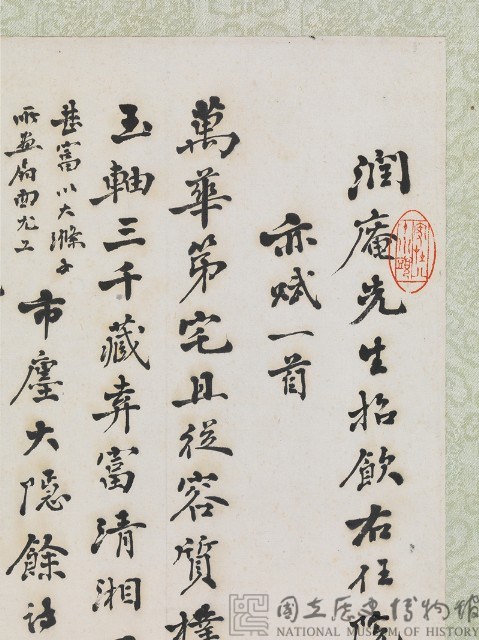 潤庵先生招飲右任院
亦賦一首
萬華第宅且從容質樸
玉軸三千藏弆富清湘
甚富以大滌子
所畫扇面尤工
市廛大隱餘詩
國立歷史博物館
NATIONAL MUSEUM OF HISTORY